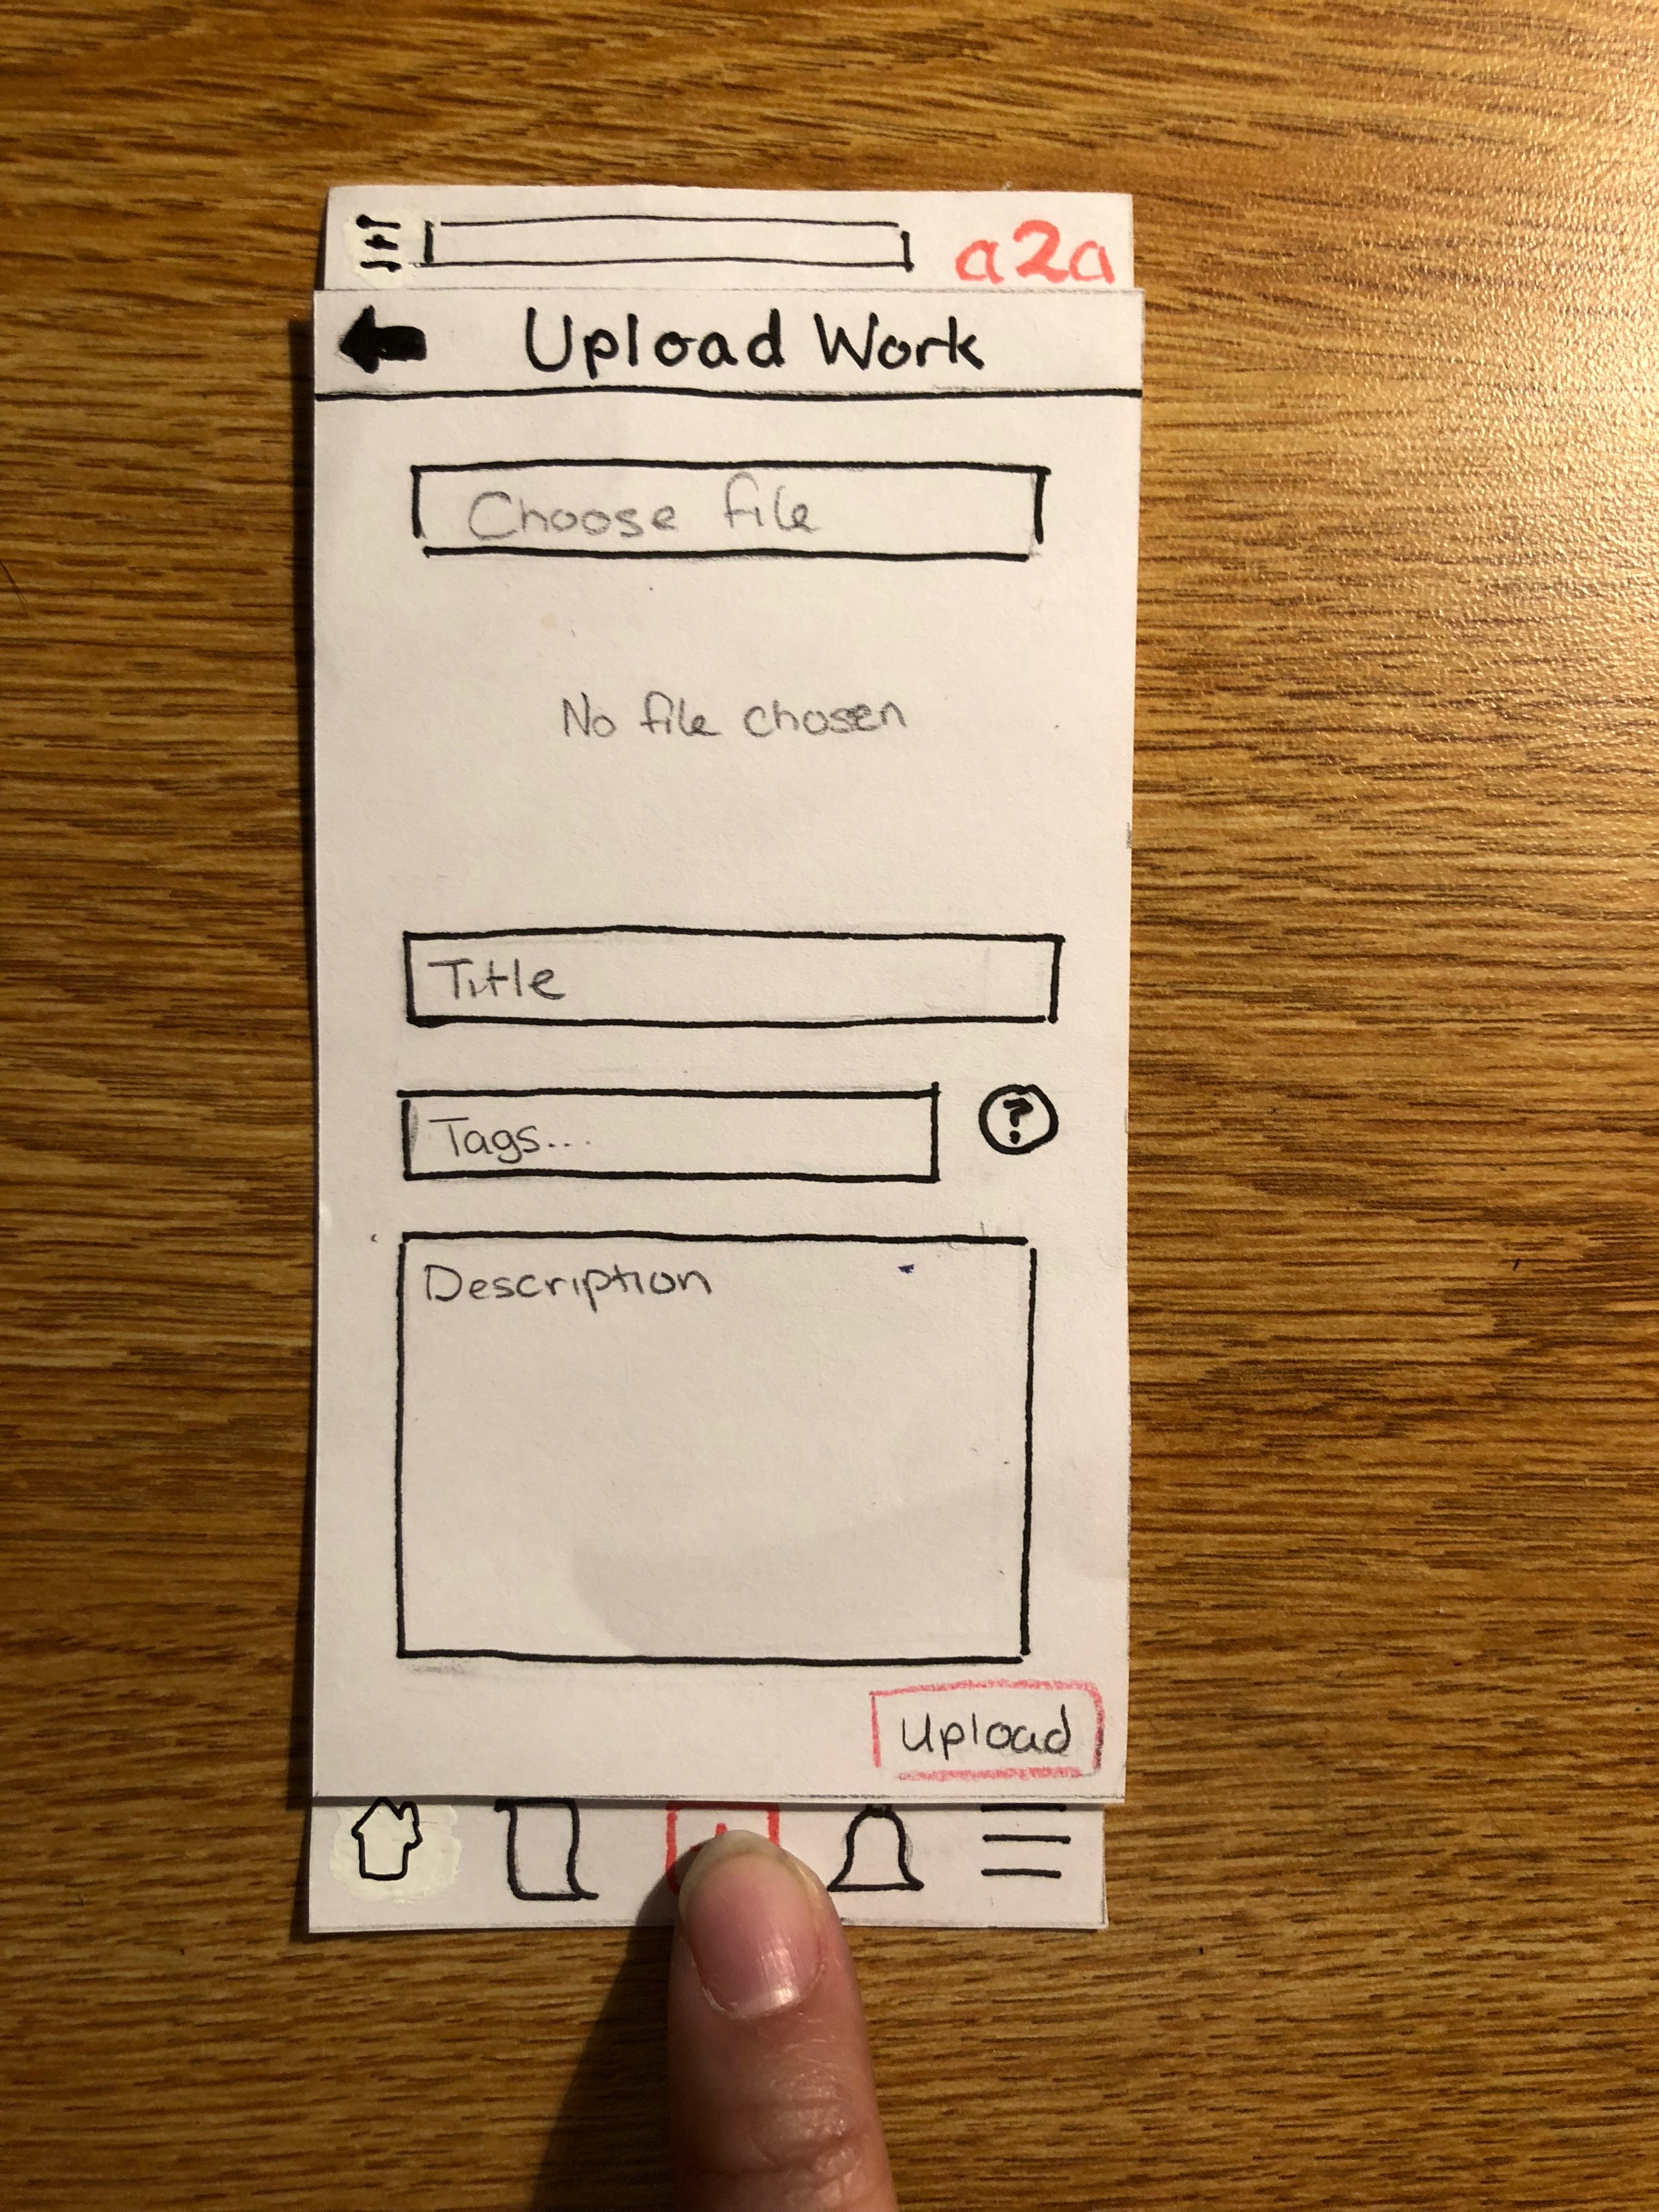 a2a
Upload Work
Choose file
No file chosen
Title
Tags...
?
Description
Upload